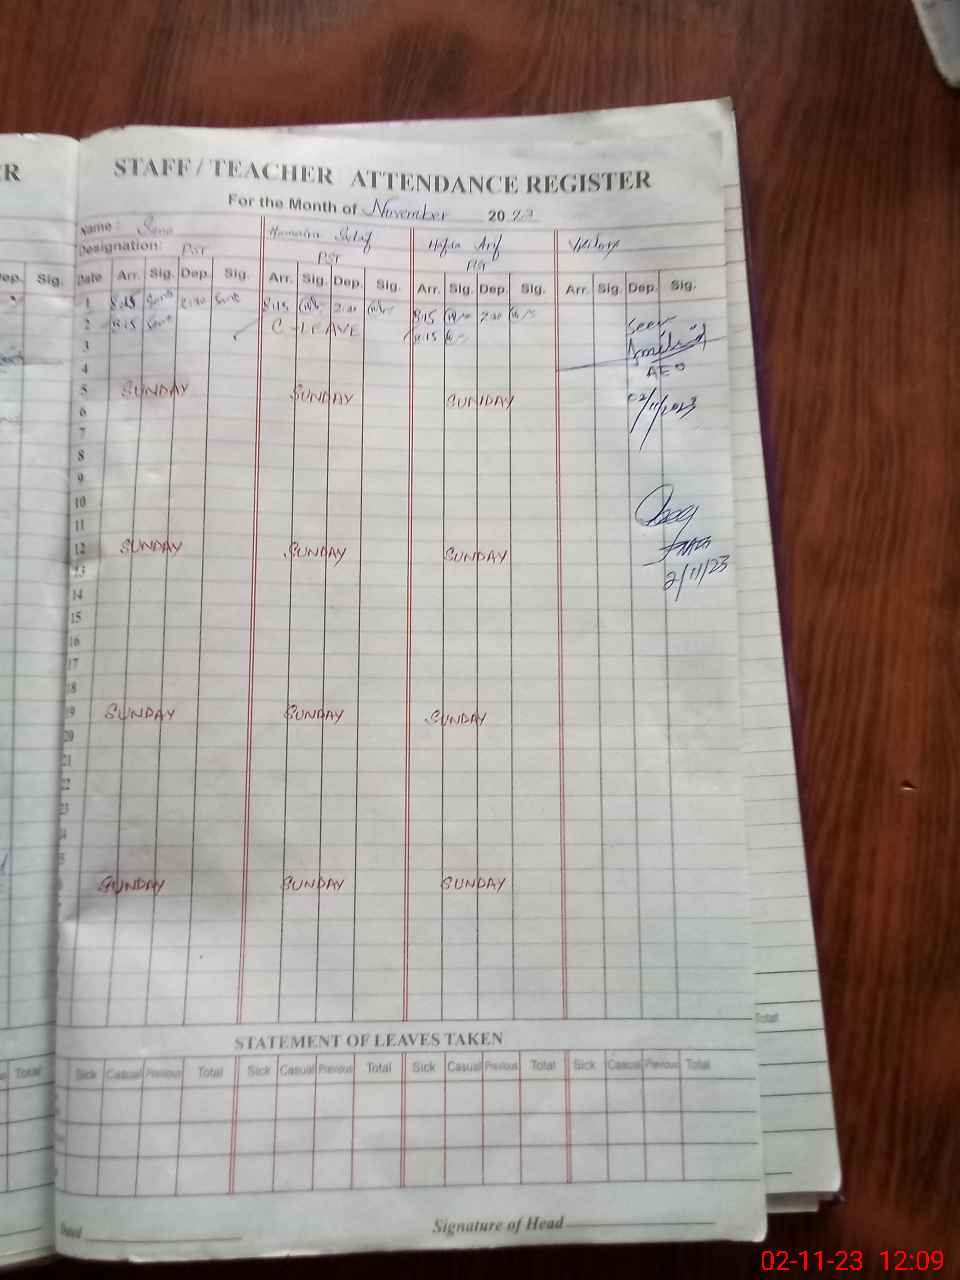 ER
STAFF / TEACHER ATTENDANCE REGISTER
For the Month of November 2023
Name: Sana Humaira Hafsa Arif
Designation: PST PST PST
Dep. Sig. Date Arr. Sig. Dep. Sig. Arr. Sig. Dep. Sig. Arr. Sig. Dep. Sig. Arr. Sig. Dep. Sig.
1 8:15 Sana Sana 8:15 8:15
2 8:15 Sana C-LEAVE 8:15 Seen
3
4 AEO
5 SUNDAY SUNDAY SUNDAY 02/11/2023
6
7
8
9
10
11
12 SUNDAY SUNDAY SUNDAY
13 2/11/23
14
15
16
17
18
19 SUNDAY SUNDAY SUNDAY
20
21
22
23
SUNDAY SUNDAY SUNDAY
Total
STATEMENT OF LEAVES TAKEN
Total Sick Casual Previous Total Sick Casual Previous Total Sick Casual Previous Total Sick Casual Previous Total
Signature of Head
02-11-23 12:09